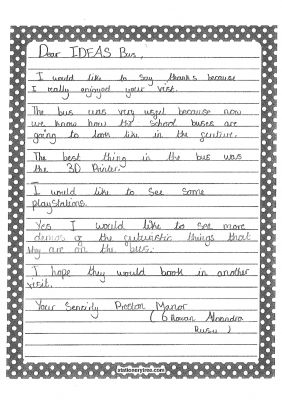 Dear IDEAS Bus,
I would like to say thanks because
I really enjoyed your visit.
The bus was very usful because now
we know how the school buses are
going to look like in the future.
The best thing in the bus was
the 3D Printer.
I would like to see some
playstations.
Yes I would like to see more
demos of the futuristic things that
they are on the bus.
I hope they would book in another
visit.
Your Sencirly Preston Manor
( 6 Rowan Alexandra
Rusu )
stationerytree.com